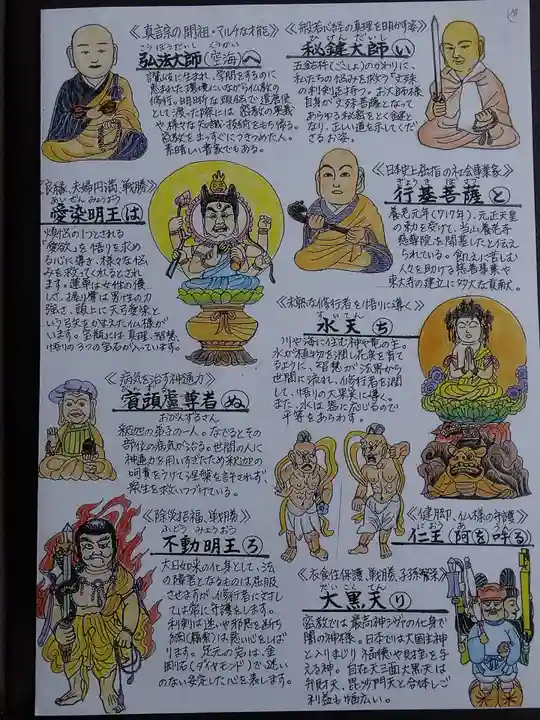 《真言宗の開祖・マルチな才能》
こうぼうだいし くうかい
弘法大師(空海)へ
讃岐に生まれ、学問をするのに
恵まれた環境にいながら仏教の
修行。
として渡った際には密教の奥義
や様々な知識・技術をもち帰る。
密教をまっすぐにきつめた人。
素晴しい書家でもある。
《般若心経の真理を明かす姿》
ひけんだいし
秘鍵大師(い)
五鈷杵(ごこしょ)のかわりに、
私たちの悩みを救う「文殊
の利剣」を持つ。お大師様
自身が文殊菩薩となって
あらゆる秘密をとく鍵と
なり、正しい道を示してくだ
さるお姿。
《良縁、夫婦円満、戦勝》
あいぜんみょうおう
愛染明王(は)
煩悩の1つとされる
「愛欲」を悟りを求め
る心に導き、様々な悩
みを救ってくれるとされ
ます。蓮華は女性の優
しさ、振り上げる男性の力
強さ、頭上に天弓愛染と
いう弓矢をかまえた仏様がい
ます。宝瓶には真理・智慧・
悟りの3つの宝石が入っています。
《日本史上屈指の社会事業家》
ぎょうきぼさつ
行基菩薩(と)
養老元年(717年)、元正天皇
の勅を受けて、当山養老寺
慈醫院を開基したと伝え
られている。飢えに苦しむ
人々を助ける慈善事業や
東大寺の建立に多大な貢献。
《未熟な修行者を悟りに導く》
すいてん
水天(ち)
川や海に住む神や竜の主。
水が植物を潤し花実を育て
るように、智慧が法界から
世間に流れ、修行者を潤
して、悟りの大果実に導く。
また、水は器に応じるので
平等をあらわす。
《病気を治す神通力》
賓頭盧尊者(ぬ)
おびんずるさん
釈迦の弟子の一人。なでるとその
部位の病気が治る。世間の人に
神通力を用いすぎたため釈迦の
呵責をうけて涅槃を許されず、
衆生を救いつづけている。
《健脚、仏様の守護》
におう あ うん
仁王(阿(を)吽(る))
《除災招福、戦勝》
ふどうみょうおう
不動明王(ろ)
大日如来の化身として、法
の障害となるものは屈服
させますが、修行者に対
しては常に守護をします。
利剣は迷いや邪悪を断ち
綱(羂索)は悪い心をしば
ります。足元の岩は、金
剛石(ダイヤモンド)で迷い
のない安定した心を表します。
《衣食住保護、戦勝、子孫繁栄》
だいこくてん
大黒天(り)
密教では最高神シヴァの化身で
闇の神様。日本では大国主神
と入りまじり福徳や財宝を与
える神。自在天三面大黒天は
弁財天、毘沙門天と合体しご
利益も幅広い。